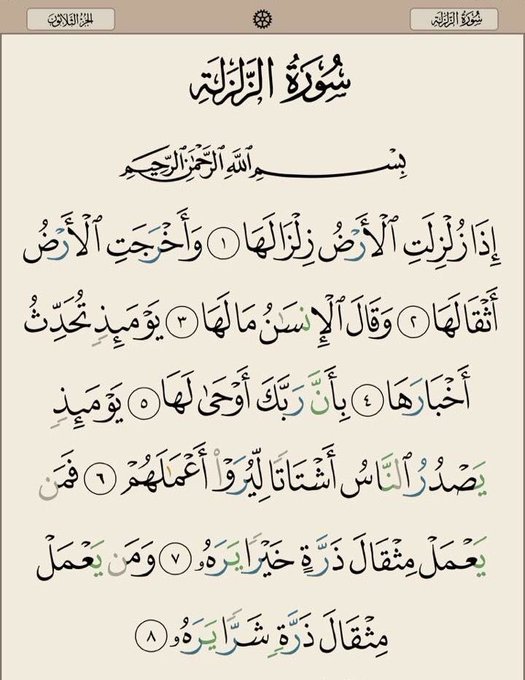 سُورَةُ الزَّلْزَلَةِ
الجُزْءُ الثَّلَاثُونَ
سُورَةُ الزَّلْزَلَةِ
بِسْمِ ٱللَّهِ ٱلرَّحْمَٰنِ ٱلرَّحِيمِ
إِذَا زُلْزِلَتِ ٱلْأَرْضُ زِلْزَالَهَا ١ وَأَخْرَجَتِ ٱلْأَرْضُ
أَثْقَالَهَا ٢ وَقَالَ ٱلْإِنسَٰنُ مَا لَهَا ٣ يَوْمَئِذٍ تُحَدِّثُ
أَخْبَارَهَا ٤ بِأَنَّ رَبَّكَ أَوْحَىٰ لَهَا ٥ يَوْمَئِذٍ
يَصْدُرُ ٱلنَّاسُ أَشْتَاتًا لِّيُرَوْا۟ أَعْمَٰلَهُمْ ٦ فَمَن
يَعْمَلْ مِثْقَالَ ذَرَّةٍ خَيْرًا يَرَهُۥ ٧ وَمَن يَعْمَلْ
مِثْقَالَ ذَرَّةٍ شَرًّا يَرَهُۥ ٨